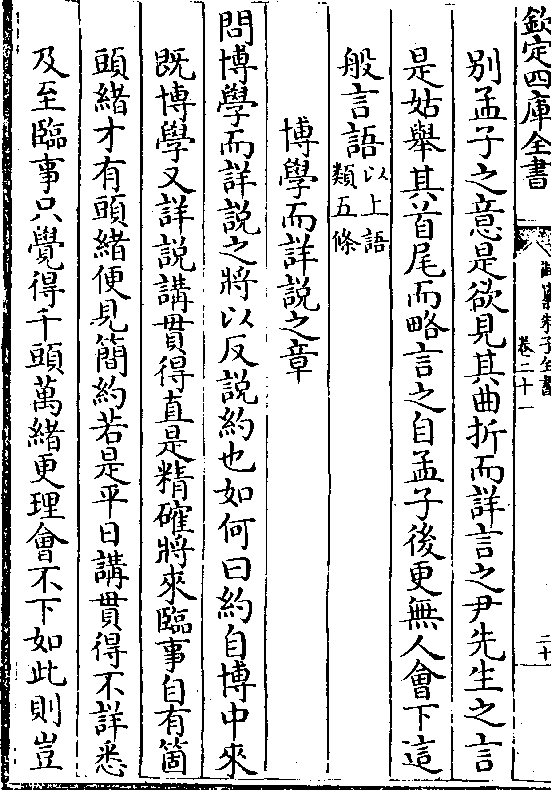 欽定四庫全書
御纂朱子全書
卷二十一
二十
別孟子之意是欲見其曲折而詳言之尹先生之言
是姑舉其首尾而略言之自孟子後更無人會下這
般言語以上語類五條
博學而詳説之章
問博學而詳説之將以反説約也如何曰約自博中來
既博學又詳説講貫得直是精確將來臨事自有箇
頭緒才有頭緒便見簡約若是平日講貫得不詳悉
及至臨事只覺得千頭萬緒更理會不下如此則豈